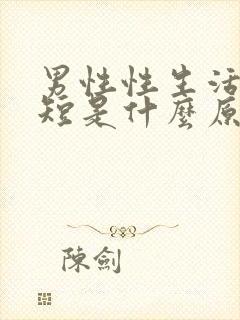 男性性生活
短是什麼原
陳劍